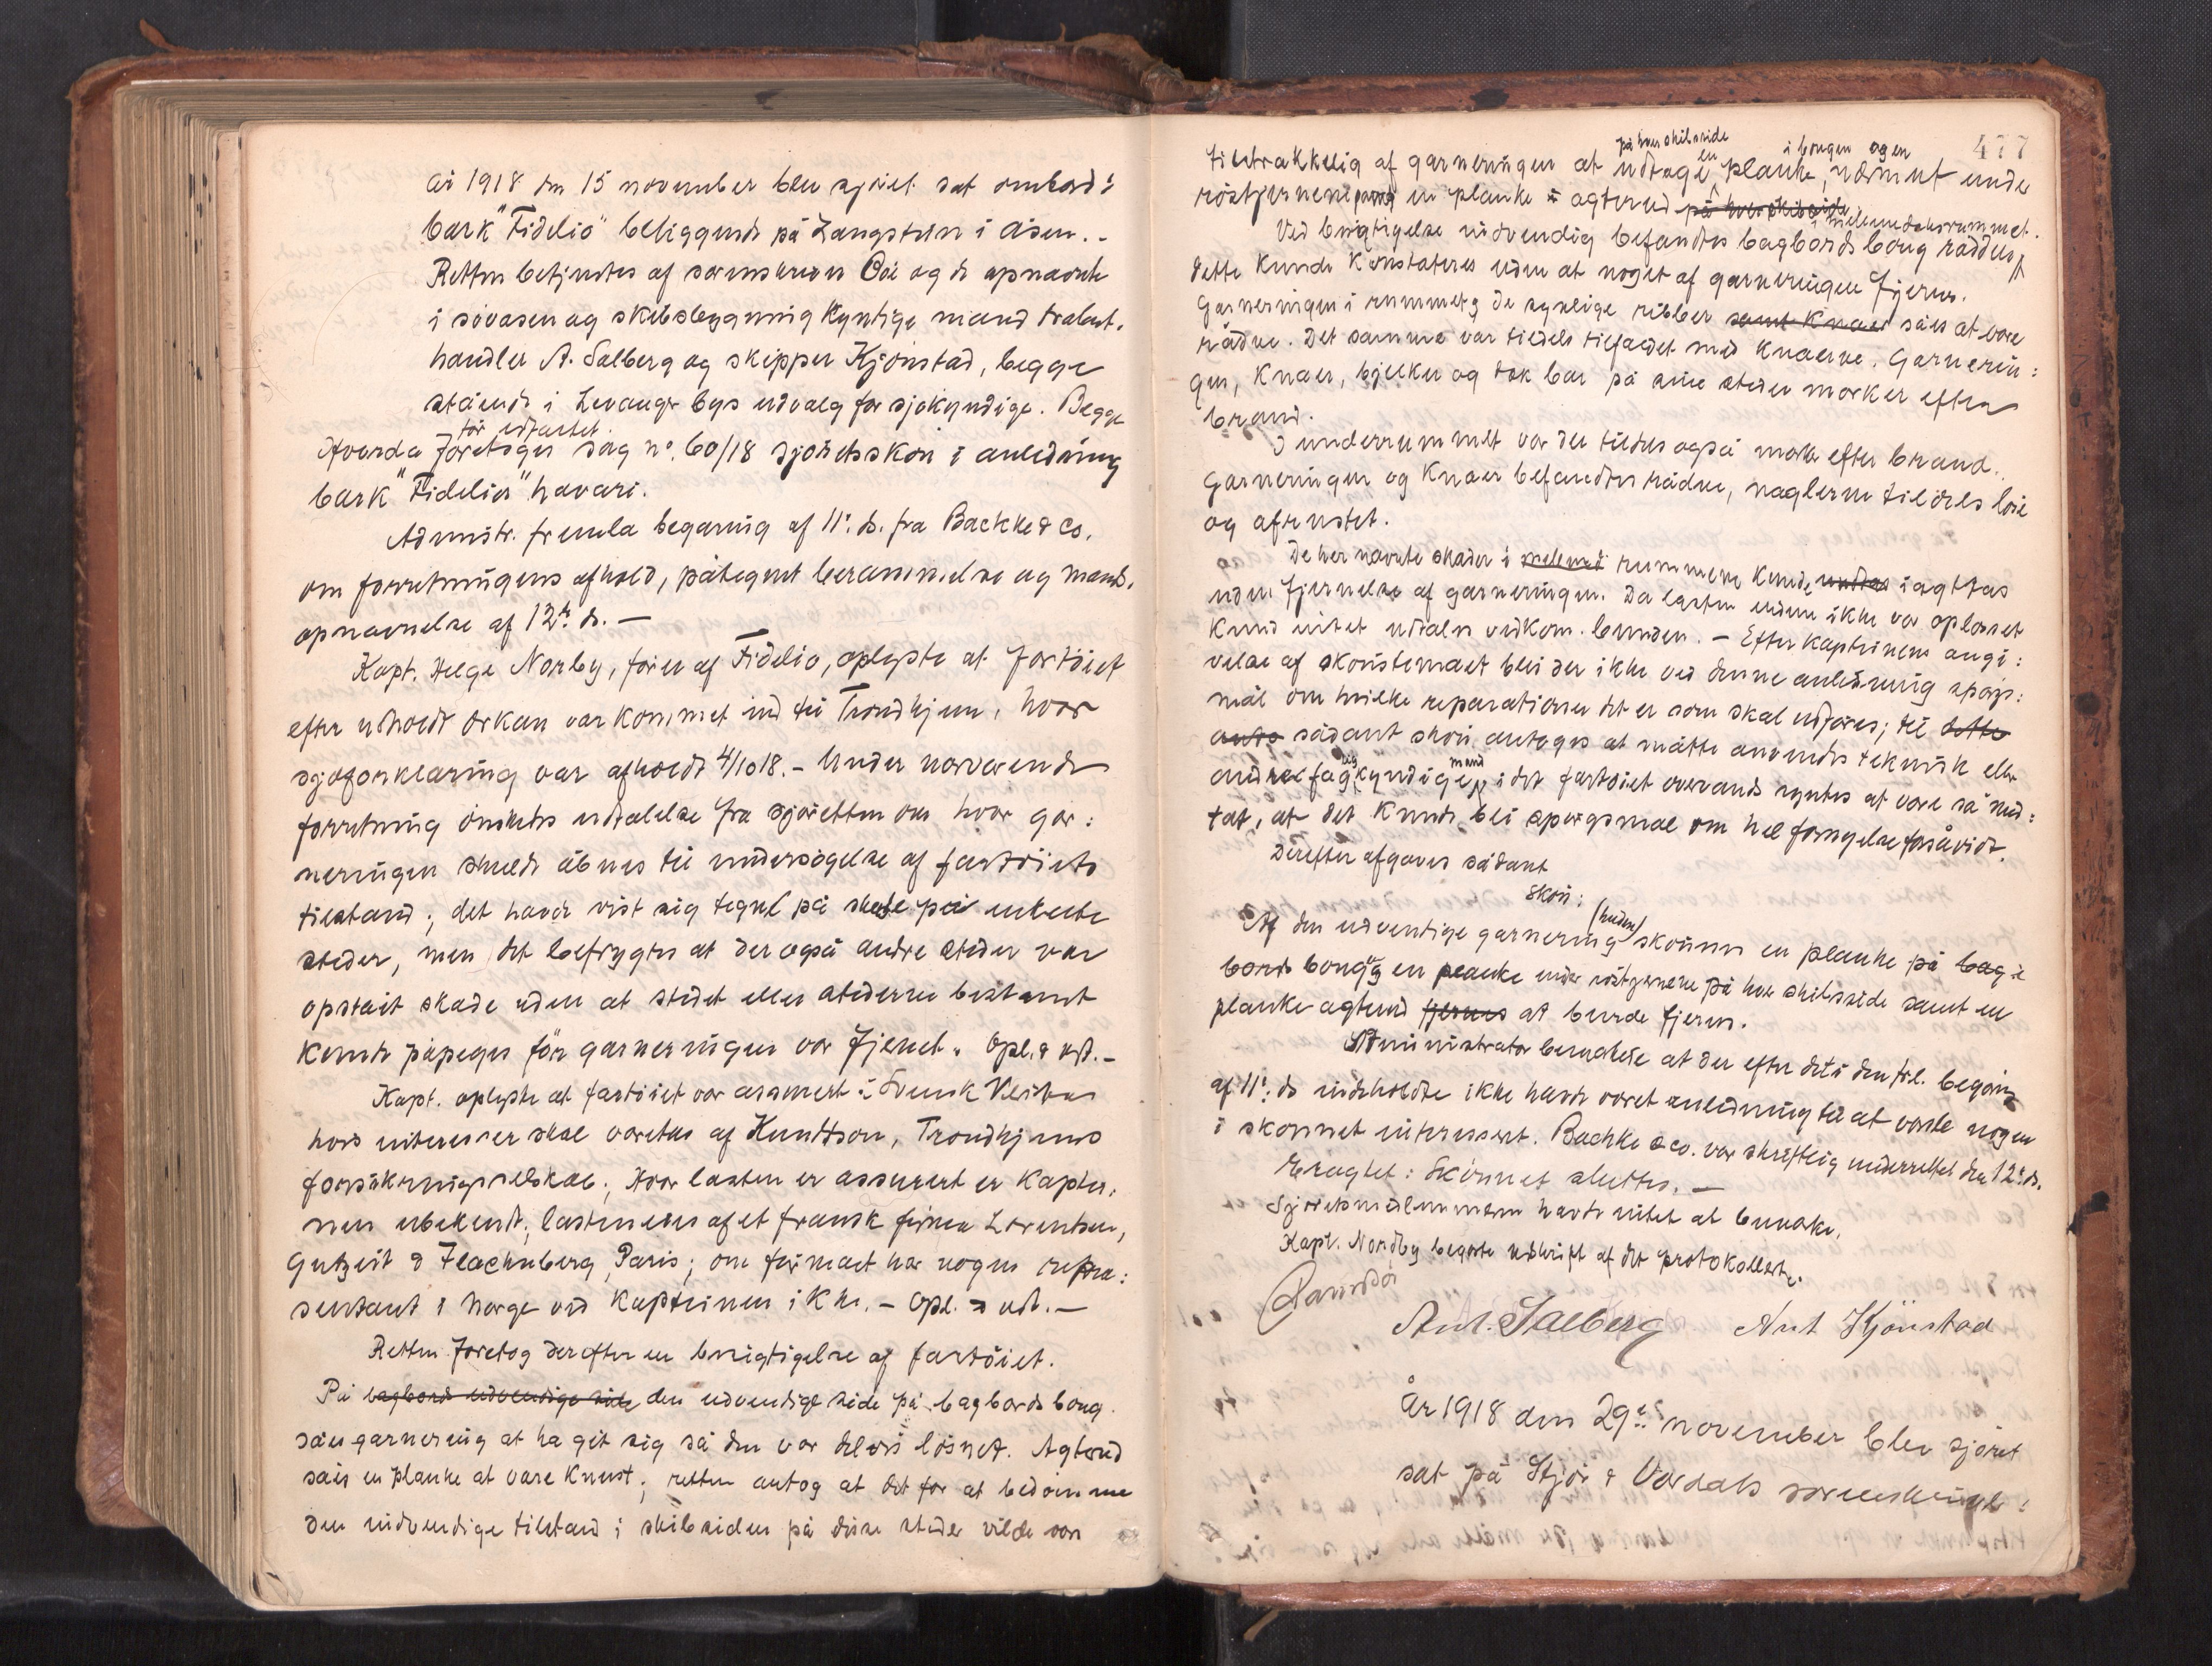 År 1918 den 15 november blev sjöret sat ombord i
bark "Fidelio" beliggende på Langstein i Åsen. -
Retten betjentes af sorenskriver Öie og de opnævnte
i sövæsen og skibsbygning kyndige mænd trælast-
handler A. Salberg og skipper Kjönstad, begge
stående i Levanger bys udvalg for sjökyndige. Begge
för edfæstet.
Hvorda foretoges sag no. 60/18 sjöretsskön i anledning
bark "Fidelio"s havari.
Adminstr. fremla begæring af 11te ds. fra Bachke & Co.
om forretningens afhold, påtegnet berammelse og mands-
opnævnelse af 12te ds. —
Kapt. Helge Norby, förer af Fidelio, oplyste at fartöiet
efter udholdt orkan var kommet ind til Trondhjem, hvor
sjöforklaring var afholdt 4/10 18. - Under nærværende
forretning önskedes udtalelse fra sjöretten om hvor gar:
neringen skulde åbnes til undersögelse af fartöiets
tilstand; det havde vist sig tegn på skade på enkelte
steder, men det befrygtes at der også andre steder var
opståit skade uden at stedet eller stederne bestemt
kunde påpeges för garneringen var fjernet. Opl. & vedt. -
Kapt. oplyste at fartöiet var assurert i Svensk Veritas
hvis interesser skal varetas af Knudtson, Trondhjems
forsikringsselskab; Hvor lasten er assurert er kaptei:
nen ubekendt; lasten eies af et fransk firma Lorentsen,
Gutzeit & Flachnberg, Paris; om firmaet har nogen repræ:
sentant i Norge ved kapteinen ikke. - Opl. & vedt. -
Retten foretog derefter en besigtigelse af fartöiet.
På bagbords udvendige side den udvendige side på bagbords boug
såes garnering at ha git sig så den var delvis lösnet. Agterud
såes en planke at være knust; retten antog at det for at bedömme
den indvendige tilstand i skibssiden på disse steder vilde være
477
på hver skibsside i bougen og en
tilstrækkelig af garneringen at udtage en planke, nærmest under
röstjernene samt en planke i agterud på hver skibsside
mellemdæksrummet.
Ved besigtigelse indvendig befandtes bagbords boug rådden
dette kunde konstateres uden at noget af garneringen fjernes.
Garneringen i rummet og de synlige ribber samt knær såes at være
rådne. Det samme var tildels tilfældet med knærne. Garnerin:
gen, knær, bjelker og dæk bar på sine steder mærker efter
brand.
I underrummet var der tildels også mærker efter brand.
Garneringen og knær befandtes rådne, naglerne tildels löse
og afrustet.
De her nævnte skader i mellemd rummene kunde iagttas
uden fjernelse af garneringen. Da lasten endnu ikke var oplosset
kund intet udtales vedkom. bunden. - Efter kapteinens angi:
velse af skönstemaet blei der ikke ved denne anledning spörs:
mål om hvilke reparationer det er som skal udföres; til dette
sådant skön antoges at måtte anvendes teknisk eller
andre fagkyndige mænd, idet fartöiet overvands syntes at være så med:
tat, at det kunde bli spörgsmål om hel fornyelse forsåvidt.
Derefter afgaves sådant
Skön:
Af den udvendige garnering (huden) skönnes en planke på bag:
bords boug og en planke under röstjernene på hver skibsside samt en
planke agterud fjernes at burde fjernes.
Administrator bemærkede at der efter det i den frl. begæring
af 11te ds indeholdte ikke havde været anledning til at varsle nogen
i skönnet interessert. Bachke & Co. var skriftlig underrettet den 12te ds.
Eragtet: Skönnet sluttes. —
Sjöretsmedlemmerne havde intet at bemærke.
Kapt. Nordby begærte udskrift af det protokollerte.
Ant. Salberg Ant Kjönstad
År 1918 den 29de november blev sjöret
sat på Stjör & Værdals sorenskriveri